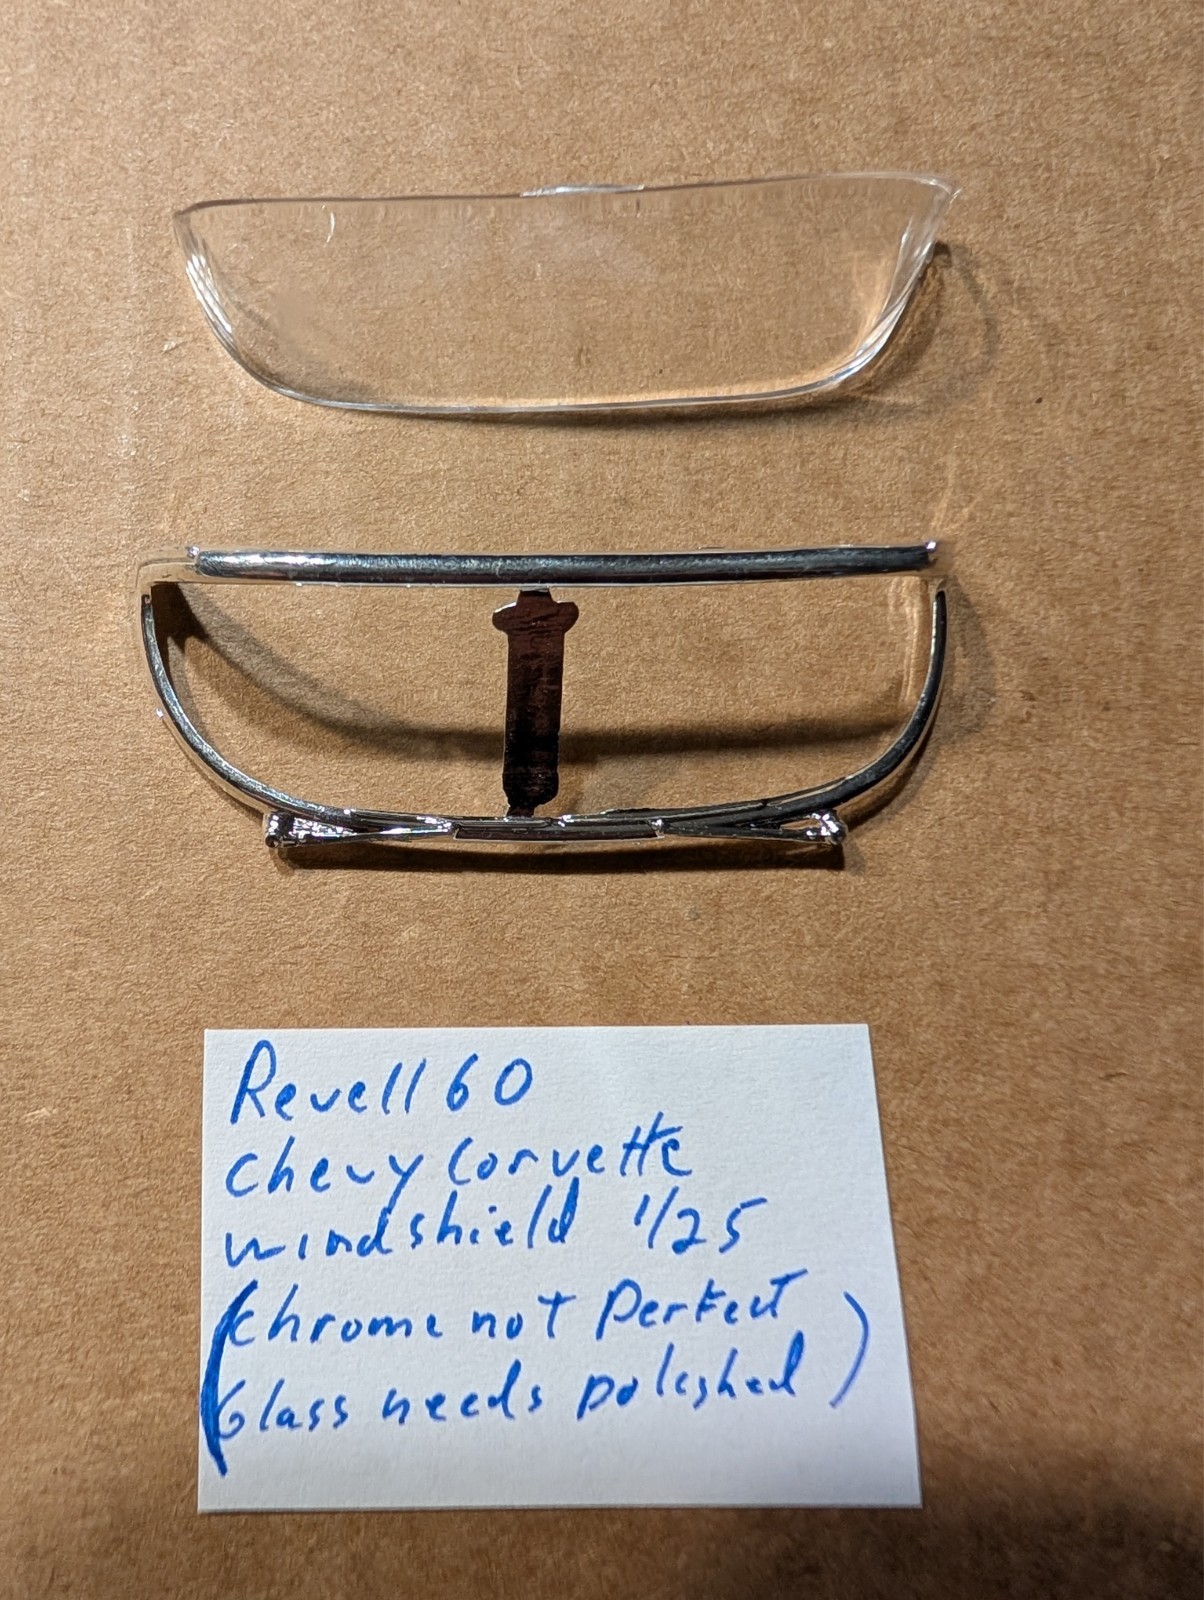 Revell 60
chevy Corvette
windshield 1/25
(Chrome not Perfect
Glass needs polished)